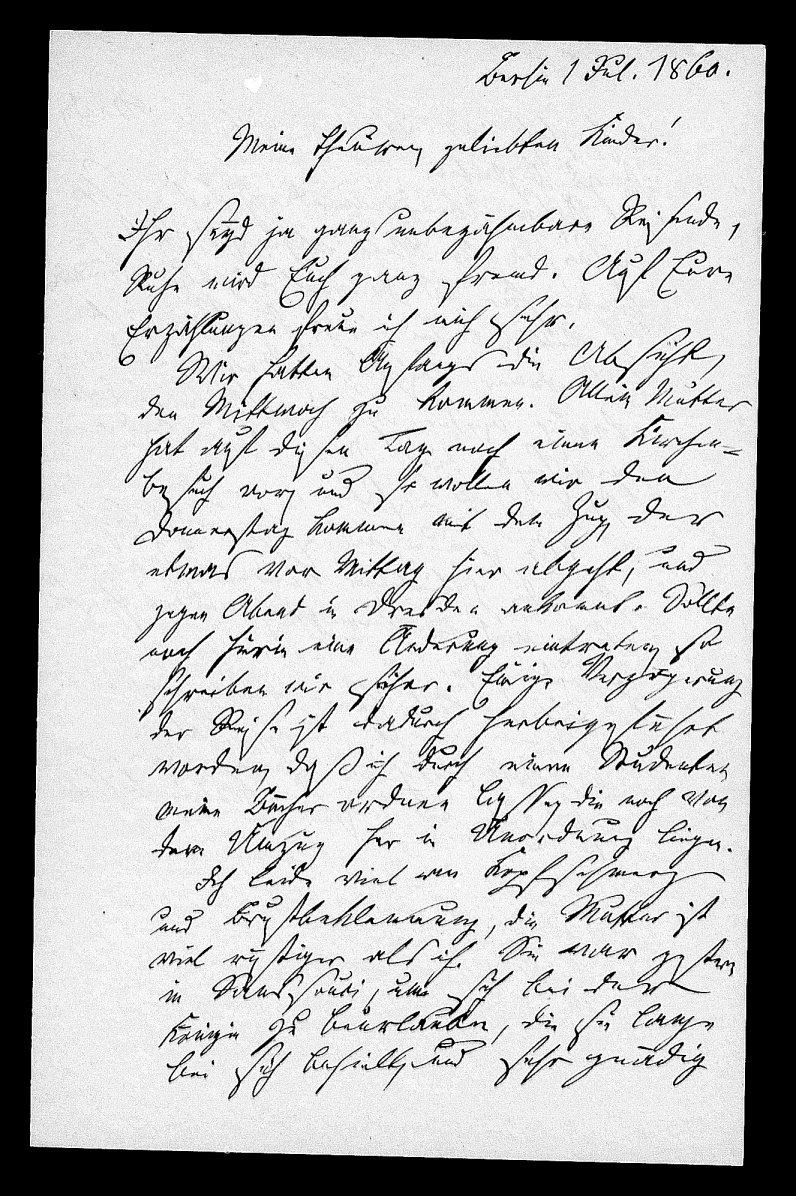 Berlin 1 Jul. 1860.
Meine theuren geliebten Kinder!
Ihr seyd ja ganz unbezähmbare Reisende,
Ruhe wird Euch ganz fremd. Auf Eure
Erzählungen freue ich mich sehr.
Wir hatten Anfangs die Absicht,
den Mittwoch zu kommen. Allein Mutter
hat auf diesen Tag noch einen Kirchen-
besuch vor, und so wollen wir den
Donnerstag kommen mit dem Zug, der
etwas vor Mittag hier abgeht, und
gegen Abend in Dresden ankommt. Sollte
noch hierin eine Änderung eintreten, so
schreiben wir früher. Einige Verzögerung
der Reise ist dadurch herbeigeführt
worden, daß ich durch einen Studenten
meine Bücher ordnen lasse, die noch von
dem Umzug her in Unordnung liegen.
Ich leide viel an Kopfschmerz
und Brustbeklemmung, die Mutter ist
viel rüstiger als ich. Sie war gestern
in Sanssouci, um sich bei der
Königin zu beurlauben, die sie lange
bei sich behielt, und sehr gnädig